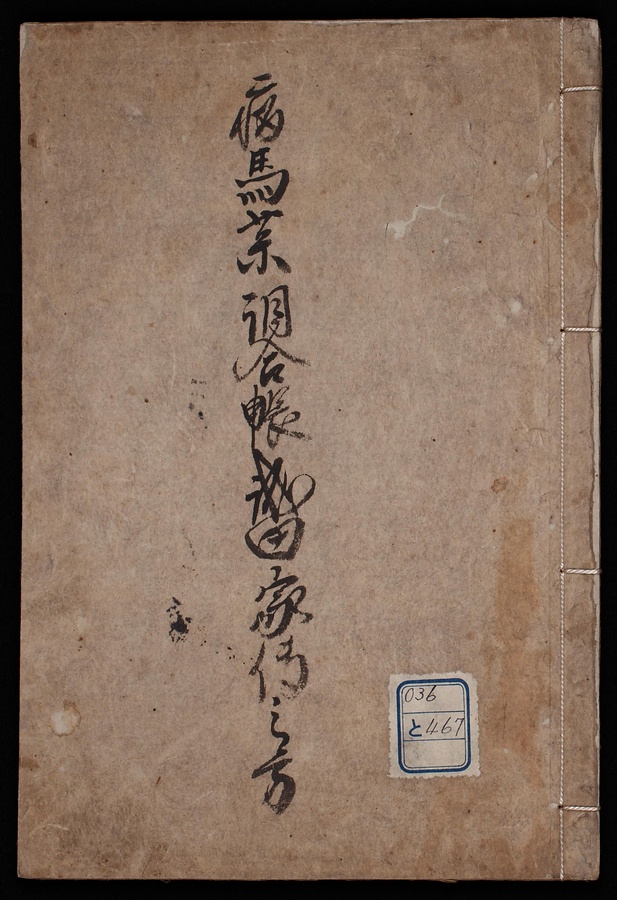 病馬薬調合帳武田家傳之方
036
と467